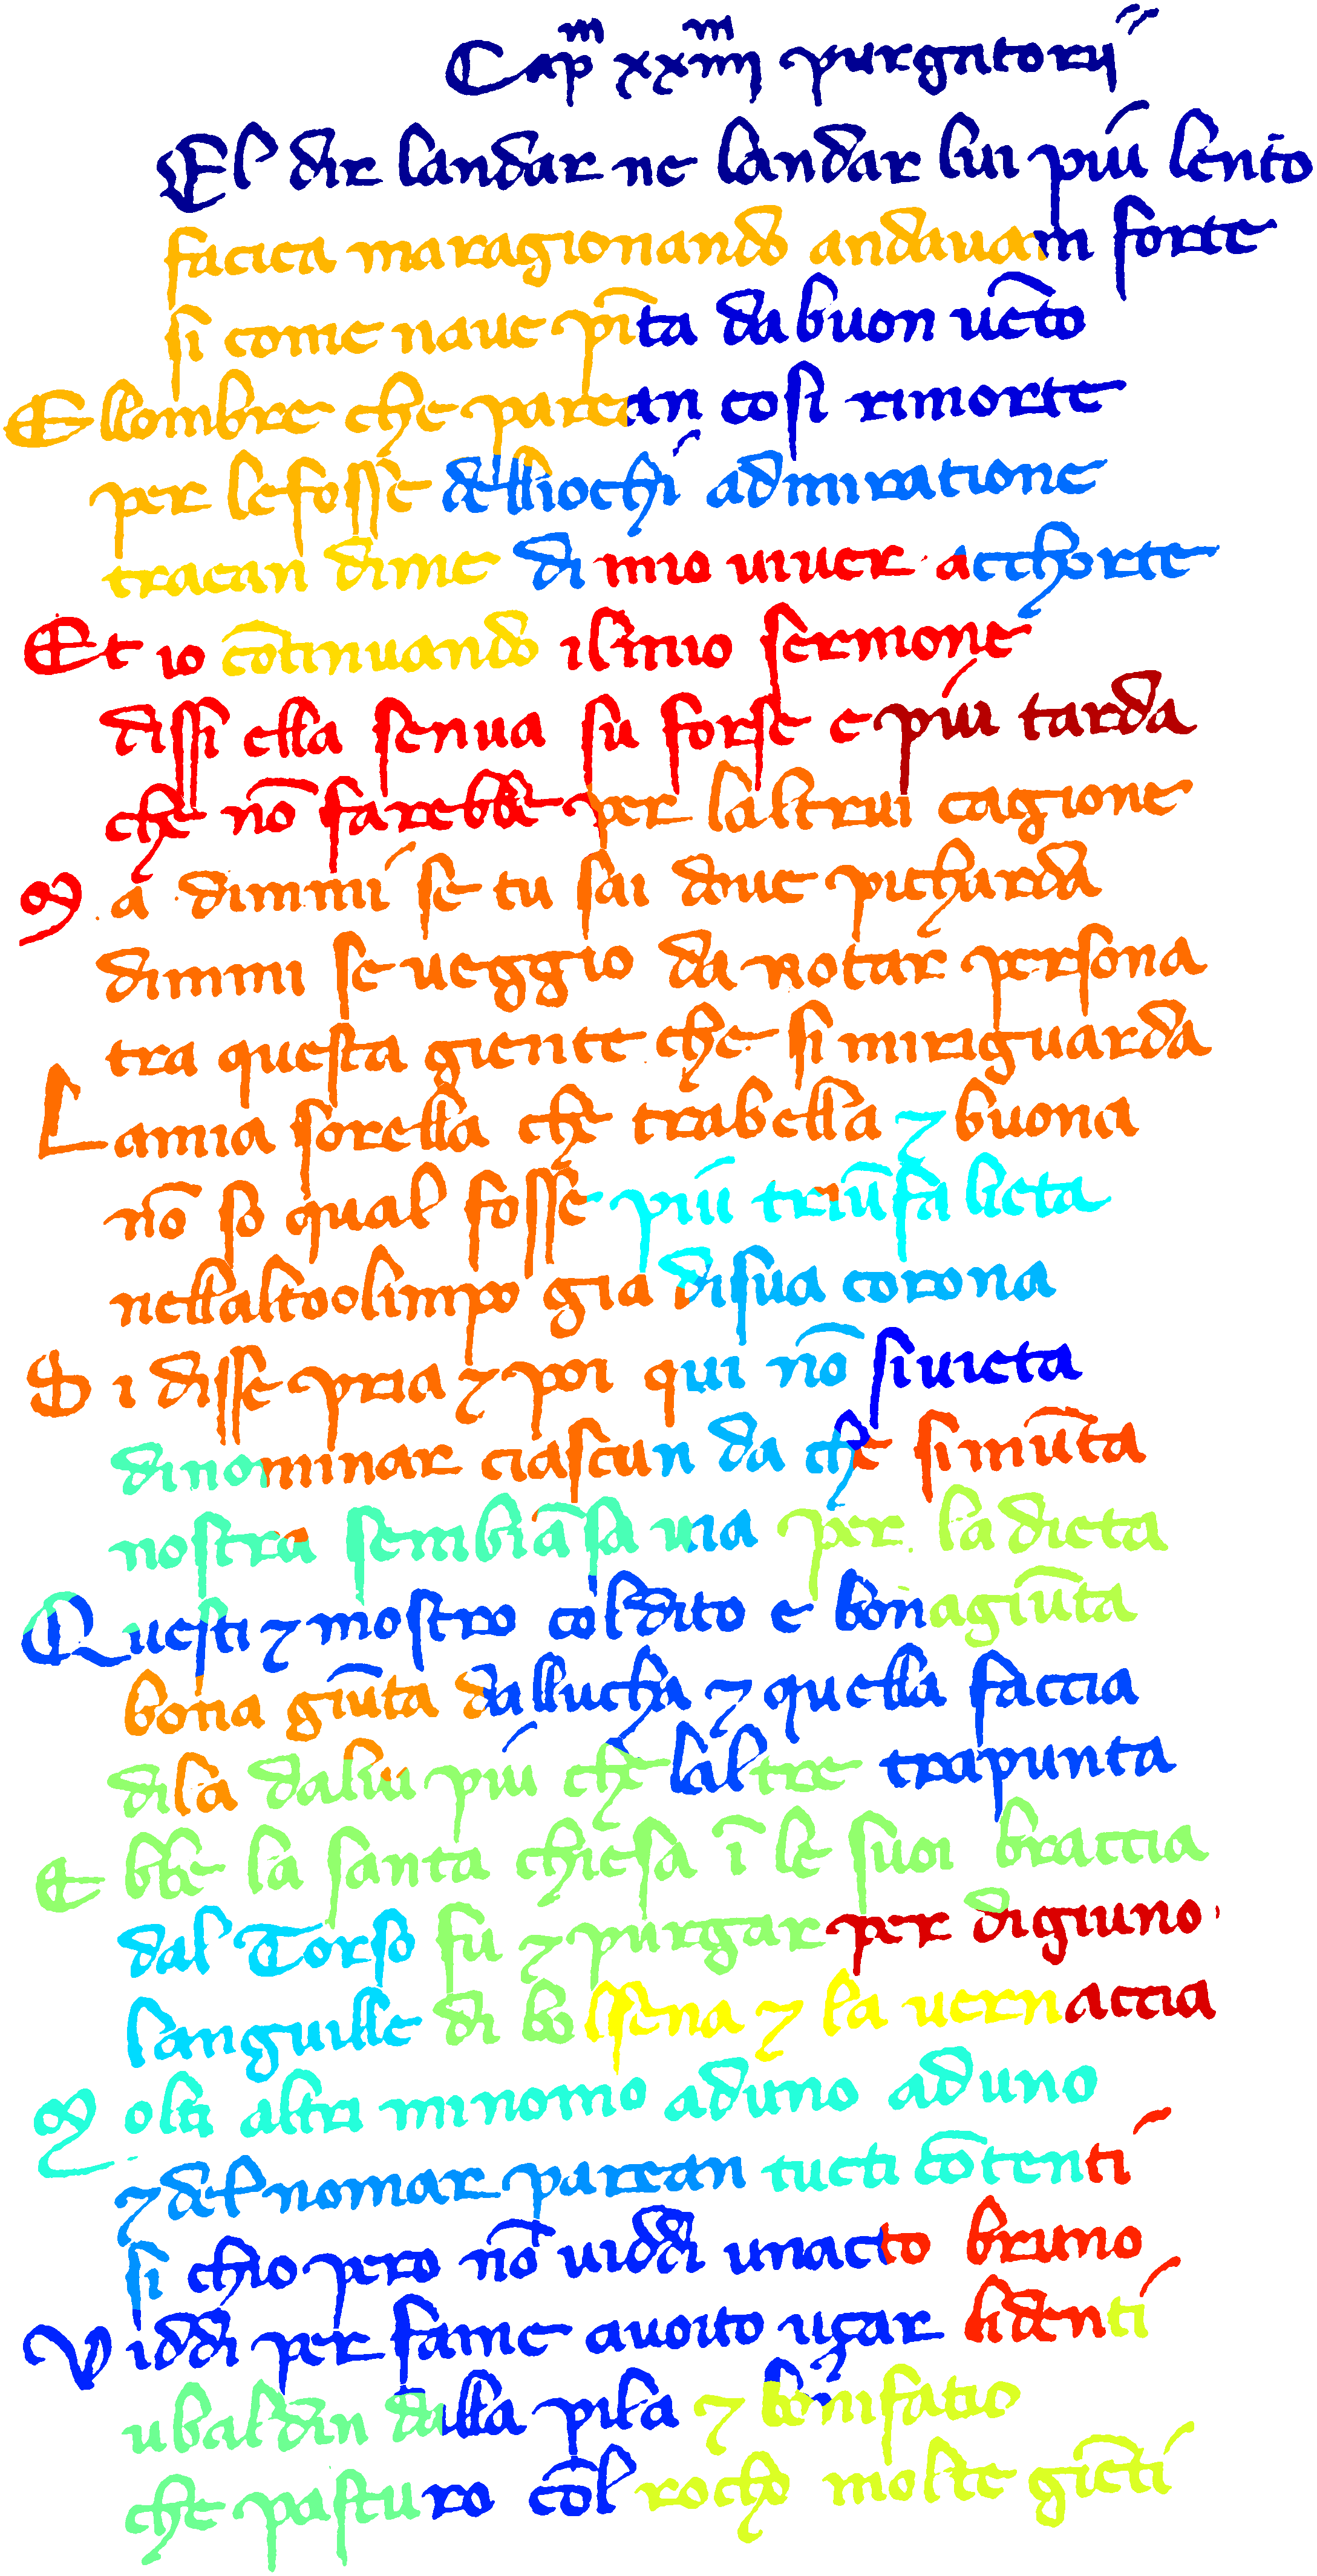 Capm xxiiiim purgatorii
El dir landar ne landar lui piu lento
facica ma ragionando andauam forte
si come naue pīta da buon uēto
E llombre che parean cosi rimorte
per le fosse delliochi admiratione
traean di me di mio uiuer acchorte
Et io cōtinuando il mio sermone
dissi ella senua su forse e piu tarda
che nō farebbe per laltrui cagione
M a dimmi se tu sai doue picharda
dimmi se ueggio da notar persona
tra questa giente che si miriguarda
L amia sorella che tra bella ⁊ buona
nō so qual fosse piu triūfa lieta
nellalto olimpo gia di sua corona
S i disse pria ⁊ poi qui nō si uieta
di nominar ciascun da che si mūta
nostra sembiāsa uia per la dieta
Q uesti ⁊ mostro col dito e bonagiūta
bona giūta dallucha ⁊ quella faccia
di la da lui piu che laltre trapunta
E bbe la santa chiesa ī le suoi braccia
dal Torso fu ⁊ purgar per digiuno
languille di bolsena ⁊ la uernaccia
M olti altri mi nomo ad uno ad uno
⁊ del nomar parean tucti cōtenti
si chio pero nō uiddi un acto bruno
V iddi per fame a uoito uçar li denti
ubaldin dalla pila ⁊ bonifatio
che pasturo cōl rocho molte giēti